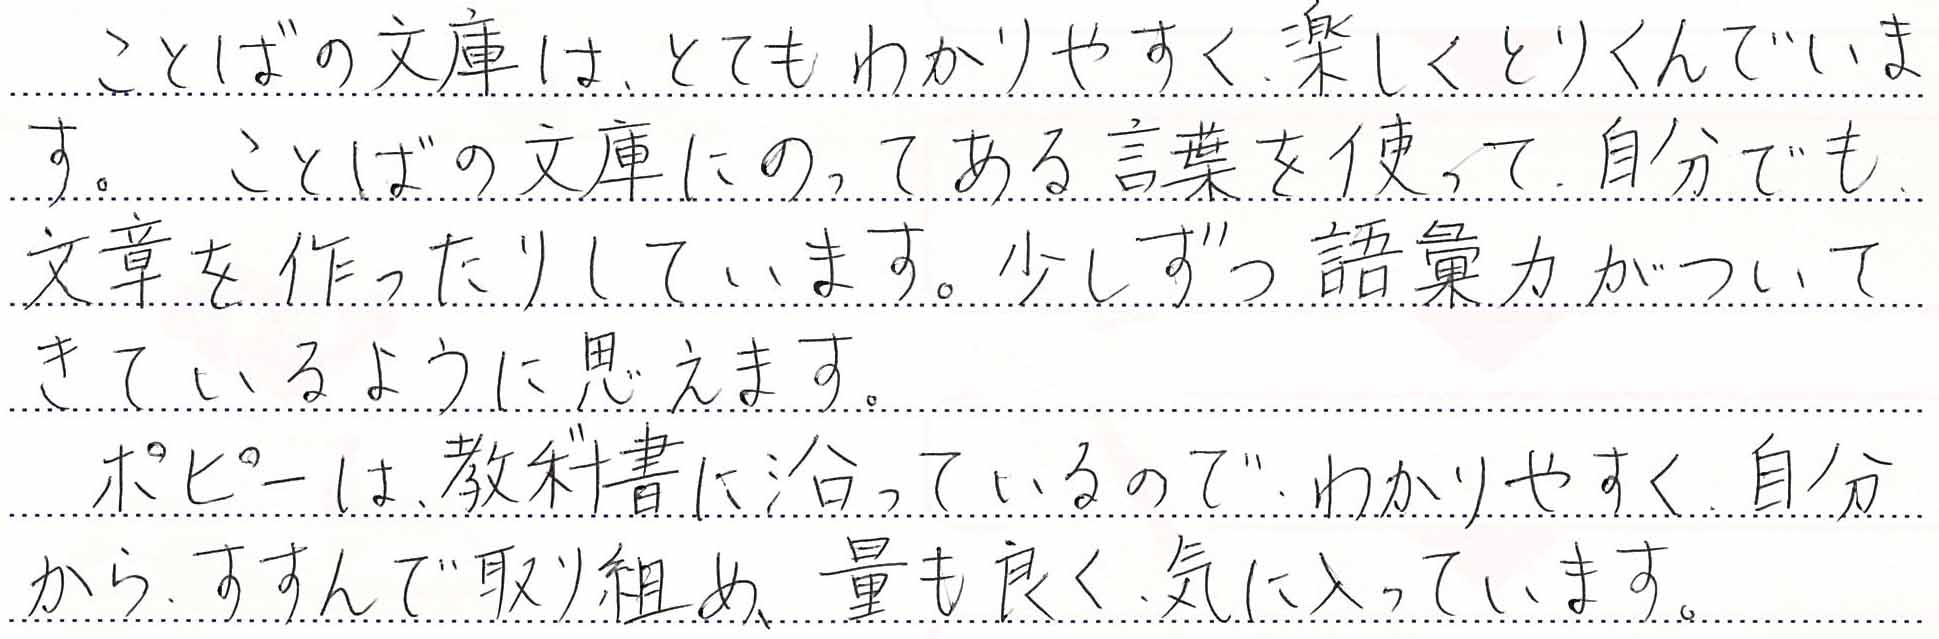 ことばの文庫は、とてもわかりやすく、楽しくとりくんでいま
す。 ことばの文庫にのってある言葉を使って、自分でも、
文章を作ったりしています。少しずつ語彙力がついて
きているように思えます。
ポピーは、教科書に沿っているので、わかりやすく、自分
から、すすんで取り組め、量も良く、気に入っています。